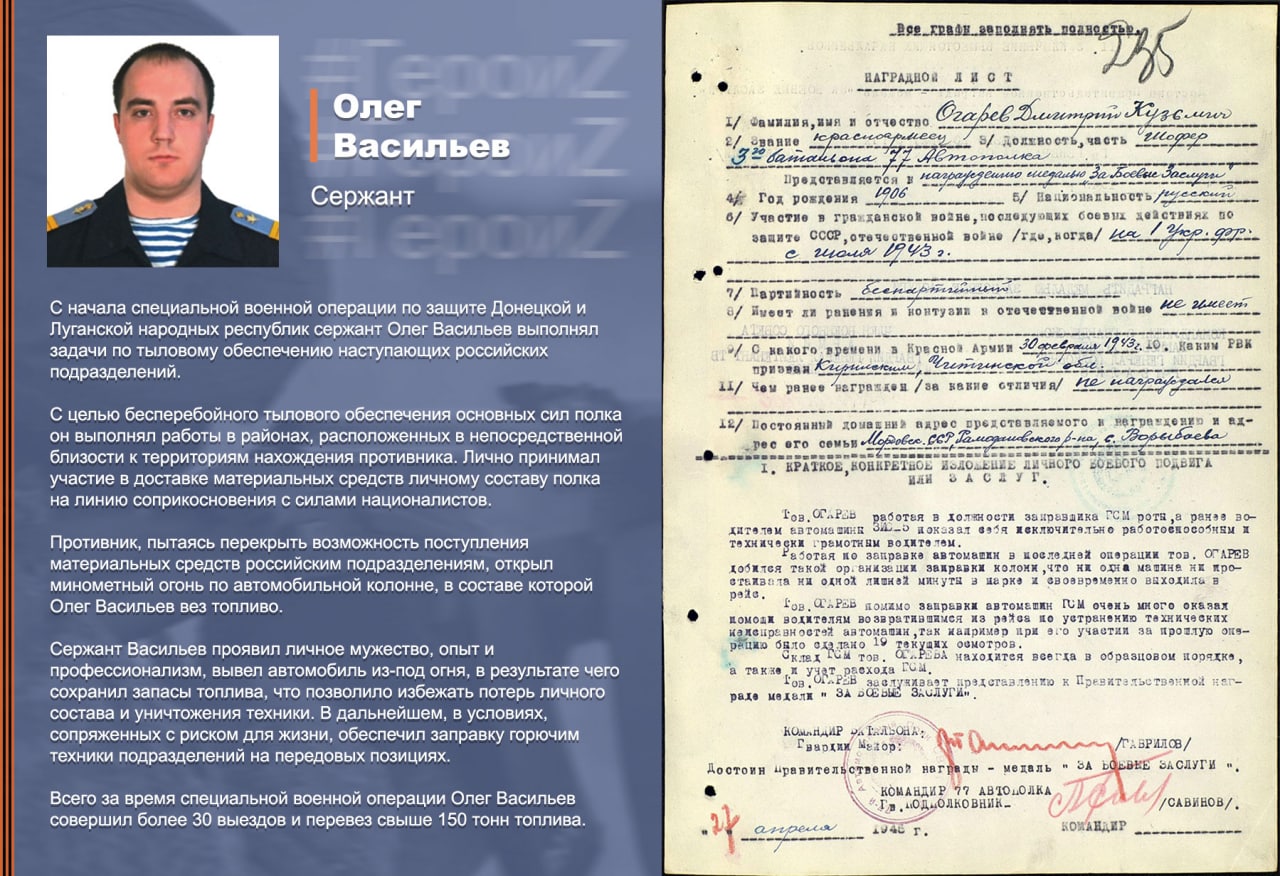 #ГероиZ
#ГероиZ
#ГероиZ
Олег
Васильев
Сержант
С начала специальной военной операции по защите Донецкой и
Луганской народных республик сержант Олег Васильев выполнял
задачи по тыловому обеспечению наступающих российских
подразделений.
С целью бесперебойного тылового обеспечения основных сил полка
он выполнял работы в районах, расположенных в непосредственной
близости к территориям нахождения противника. Лично принимал
участие в доставке материальных средств личному составу полка
на линию соприкосновения с силами националистов.
Противник, пытаясь перекрыть возможность поступления
материальных средств российским подразделениям, открыл
минометный огонь по автомобильной колонне, в составе которой
Олег Васильев вез топливо.
Сержант Васильев проявил личное мужество, опыт и
профессионализм, вывел автомобиль из-под огня, в результате чего
сохранил запасы топлива, что позволило избежать потерь личного
состава и уничтожения техники. В дальнейшем, в условиях,
сопряженных с риском для жизни, обеспечил заправку горючим
техники подразделений на передовых позициях.
Всего за время специальной военной операции Олег Васильев
совершил более 30 выездов и перевез свыше 150 тонн топлива.
Все графы заполнять полностью.
235
НАГРАДНОЙ ЛИСТ
1/ Фамилия,имя и отчество Огарев Дмитрий Кузьмич
2/ Звание красноармеец 3/ Должность,часть Шофер
3го батальона 77 Автополка
Представляется к награждению медалью "За Боевые Заслуги"
4/ Год рождения 1906 5/ Национальность русский
6/ Участие в гражданской войне,последующих боевых действиях по
защите СССР,отечественной войне /где,когда/ на 1 Укр. фр.
с июля 1943 г.
7/ Партийность беспартийный
8/ Имеет ли ранения и контузии в отечественной войне не имеет
9/ С какого времени в Красной Армии 30 февраля 1943г. 10. Каким РВК
призван Читинской обл.
11/ Чем ранее награжден /за какие отличия/ не награждался
12/ Постоянный домашний адрес представляемого к награждению и ад-
рес его семьи Мордовск. ССР Ромодановского р-на с.
I. КРАТКОЕ,КОНКРЕТНОЕ ИЗЛОЖЕНИЕ ЛИЧНОГО БОЕВОГО ПОДВИГА
ИЛИ ЗАСЛУГ.
Тов. ОГАРЕВ работая в должности заправщика ГСМ роты,а ранее во-
дителем автомашины показал себя исключительно работоспособным и
технически грамотным водителем.
Работая по заправке автомашин в последней операции тов. ОГАРЕВ
добился такой организации заправки колонн,что ни одна машина ни про-
стаивала ни одной лишней минуты в парке и своевременно выходила в
рейс.
Тов. ОГАРЕВ помимо заправки автомашин ГСМ очень много оказал
помощи водителям возвратившимся из рейса по устранению технических
неисправностей автомашин,так например при его участии за прошлую опе-
рацию было сделано 19 текущих осмотров.
Склад ГСМ тов. ОГАРЕВА находится всегда в образцовом порядке,
а также и учет расхода ГСМ.
Тов. ОГАРЕВ заслуживает представлению к Правительственной наг-
раде медали " ЗА БОЕВЫЕ ЗАСЛУГИ".
КОМАНДИР БАТАЛЬОНА:
Гвардии Майор: /ГАВРИЛОВ/
Достоин Правительственной награды - медаль " ЗА БОЕВЫЕ ЗАСЛУГИ ".
КОМАНДИР 77 АВТОПОЛКА
Гв. ПОДПОЛКОВНИК /САВИНОВ/.
"27" апреля 1945 г. КОМАНДИР